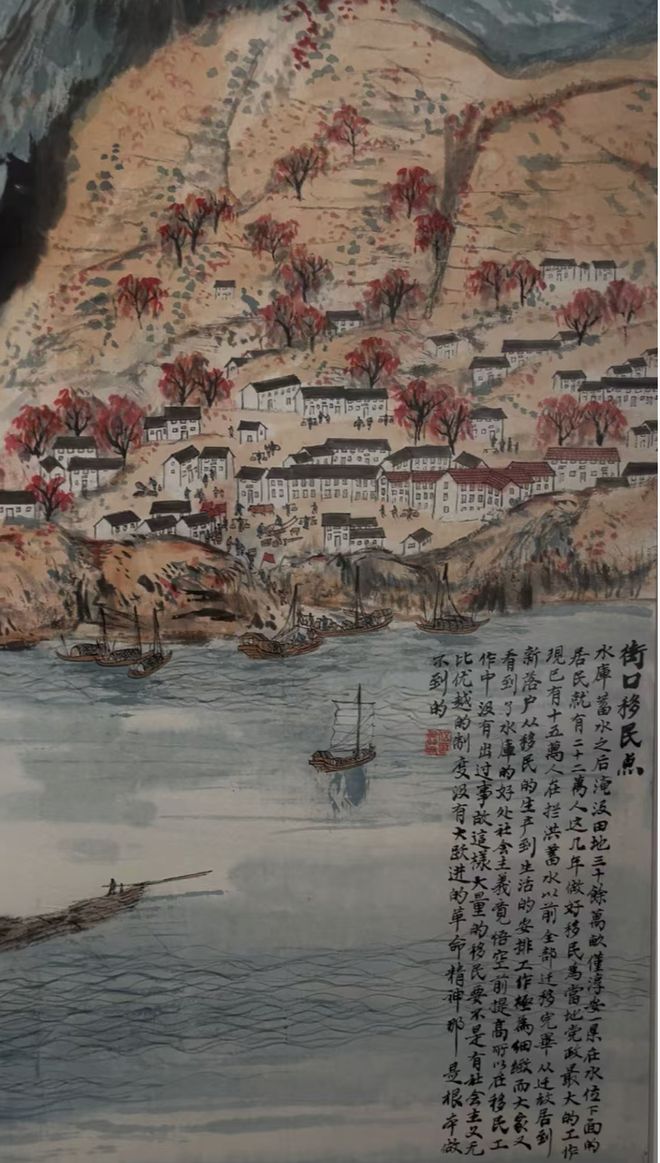 街口移民点
水庫蓄水之后淹没田地三十餘萬畝僅淳安一県在水位下面的
居民就有二十二萬人这几年做好移民為當地党政最大的工作
現已有十五萬人在拦洪蓄水以前全部迁移完畢从迁故居到
新落户从移民的生产到生活的安排工作極為細緻而大家又
看到了水庫的好处社会主義覚悟空前提高所以在移民工
作中没有出过事故这樣大量的移民要不是有社会主义无
比优越的制度没有大跃进的革命精神那是根本做
不到的